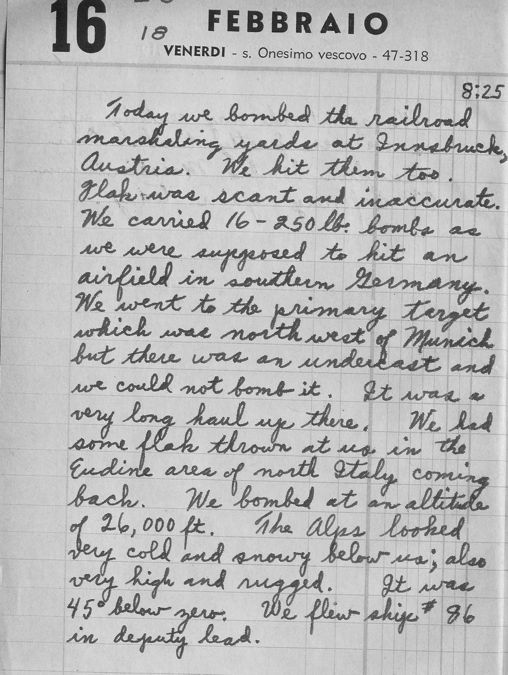 16 FEBBRAIO
18
VENERDI - s. Onesimo vescovo - 47-318
8:25
Today we bombed the railroad
marshaling yards at Innsbruck,
Austria. We hit them too.
Flak was scant and inaccurate.
We carried 16-250 lb. bombs as
we were supposed to hit an
airfield in southern Germany.
We went to the primary target
which was north west of Munich
but there was an undercast and
we could not bomb it. It was a
very long haul up there. We had
some flak thrown at us in the
Eudine area of north Italy coming
back. We bombed at an altitude
of 26,000 ft. The Alps looked
very cold and snowy below us; also
very high and rugged. It was
45° below zero. We flew ship # 86
in deputy lead.